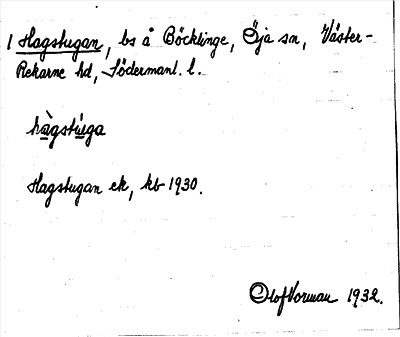 1 Hagstugan, bs å Böcklinge, Öja sn, Väster-
Rekarne hd, Södermanl. l.
hàgstúga
Hagstugan ek, kb 1930.
Olof Vorman 1932.